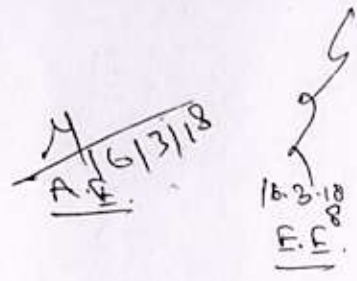 16/3/18
A.E.
16.3.18
E.E.